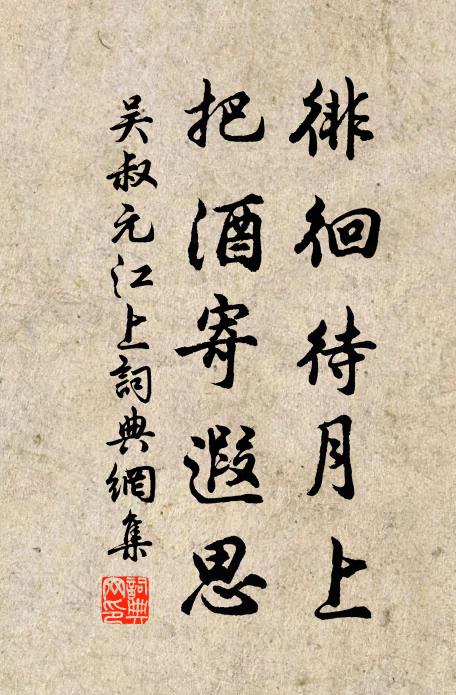 徘徊待月上
把酒寄遐思
吴叔元江上詞典網集
詞典网印